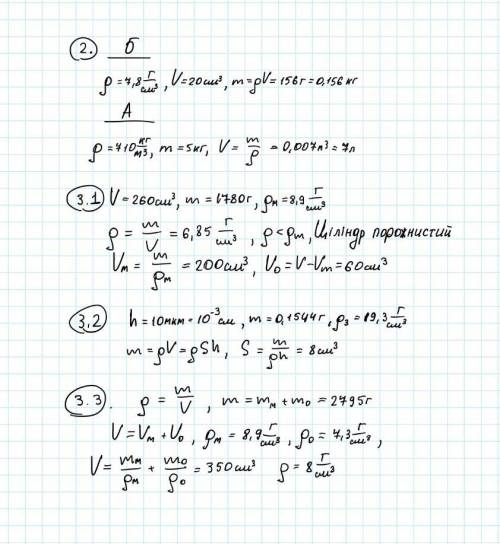 2. Б
ρ = 7,8 г/см³, V = 20 см³, m = ρV = 156 г = 0,156 кг
А
ρ = 710 кг/м³, m = 5 кг, V = m/ρ = 0,007 м³ = 7 л
3.1 V = 260 см³, m = 1780 г, ρм = 8,9 г/см³
ρ = m/V = 6,85 г/см³, ρ < ρм, Циліндр порожнистий
Vм = m/ρм = 200 см³, V₀ = V − Vм = 60 см³
3,2 h = 10 мкм = 10⁻³ см, m = 0,1544 г, ρ₃ = 19,3 г/см³
m = ρV = ρSh, S = m/ρh = 8 см²
3.3. ρ = m/V, m = mм + m₀ = 2795 г
V = Vм + V₀, ρм = 8,9 г/см³, ρ₀ = 7,3 г/см³,
V = mм/ρм + m₀/ρ₀ = 350 см³ ρ = 8 г/см³